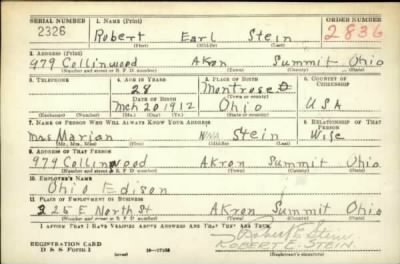 SERIAL NUMBER 1. NAME (Print) ORDER NUMBER
2326 Robert Earl Stein 2836
(First) (Middle) (Last)
2. ADDRESS (Print)
979 Collinwood Akron Summit Ohio
(Number and street or R. F. D. number) (Town) (County) (State)
3. TELEPHONE 4. AGE IN YEARS 5. PLACE OF BIRTH 6. COUNTRY OF CITIZENSHIP
28 Montrose
DATE OF BIRTH (Town or county)
Mch 20 1912 Ohio USA
(Exchange) (Number) (Mo.) (Day) (Yr.) (State or country)
7. NAME OF PERSON WHO WILL ALWAYS KNOW YOUR ADDRESS 8. RELATIONSHIP OF THAT PERSON
Mrs Marian Stein Wife
(Mr., Mrs., Miss) (First) (Middle) (Last)
9. ADDRESS OF THAT PERSON
979 Collinwood Akron Summit Ohio
(Number and street or R. F. D. number) (Town) (County) (State)
10. EMPLOYER'S NAME
Ohio Edison
11. PLACE OF EMPLOYMENT OR BUSINESS
225 E North St Akron Summit Ohio
(Number and street or R. F. D. number) (Town) (County) (State)
I AFFIRM THAT I HAVE VERIFIED ABOVE ANSWERS AND THAT THEY ARE TRUE.
Robert E. Stein
REGISTRATION CARD ROBERT E. STEIN.
D S S Form 1 (over)